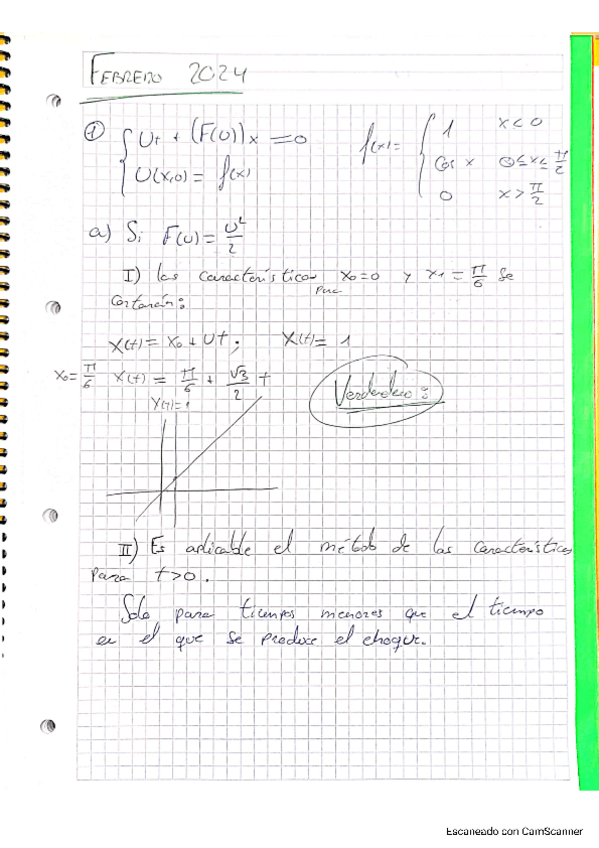 FEBRERO 2024
① { Ut + (F(U))x = 0
U(x,0) = f(x)
f(x) = { 1 x < 0
Cos x 0 ≤ x ≤ π/2
0 x > π/2
a) Si F(u) = u²/2
I) las características para x0=0 y x1 = π/6 se
cortarán:
X(t) = X0 + Ut ; X(t) = 1
X0 = π/6 X(t) = π/6 + √3/2 t
X(t) = 1
Verdadero :
II) Es aplicable el método de las características
para t>0.
Solo para tiempos menores que el tiempo
en el que se produce el choque.
Escaneado con CamScanner